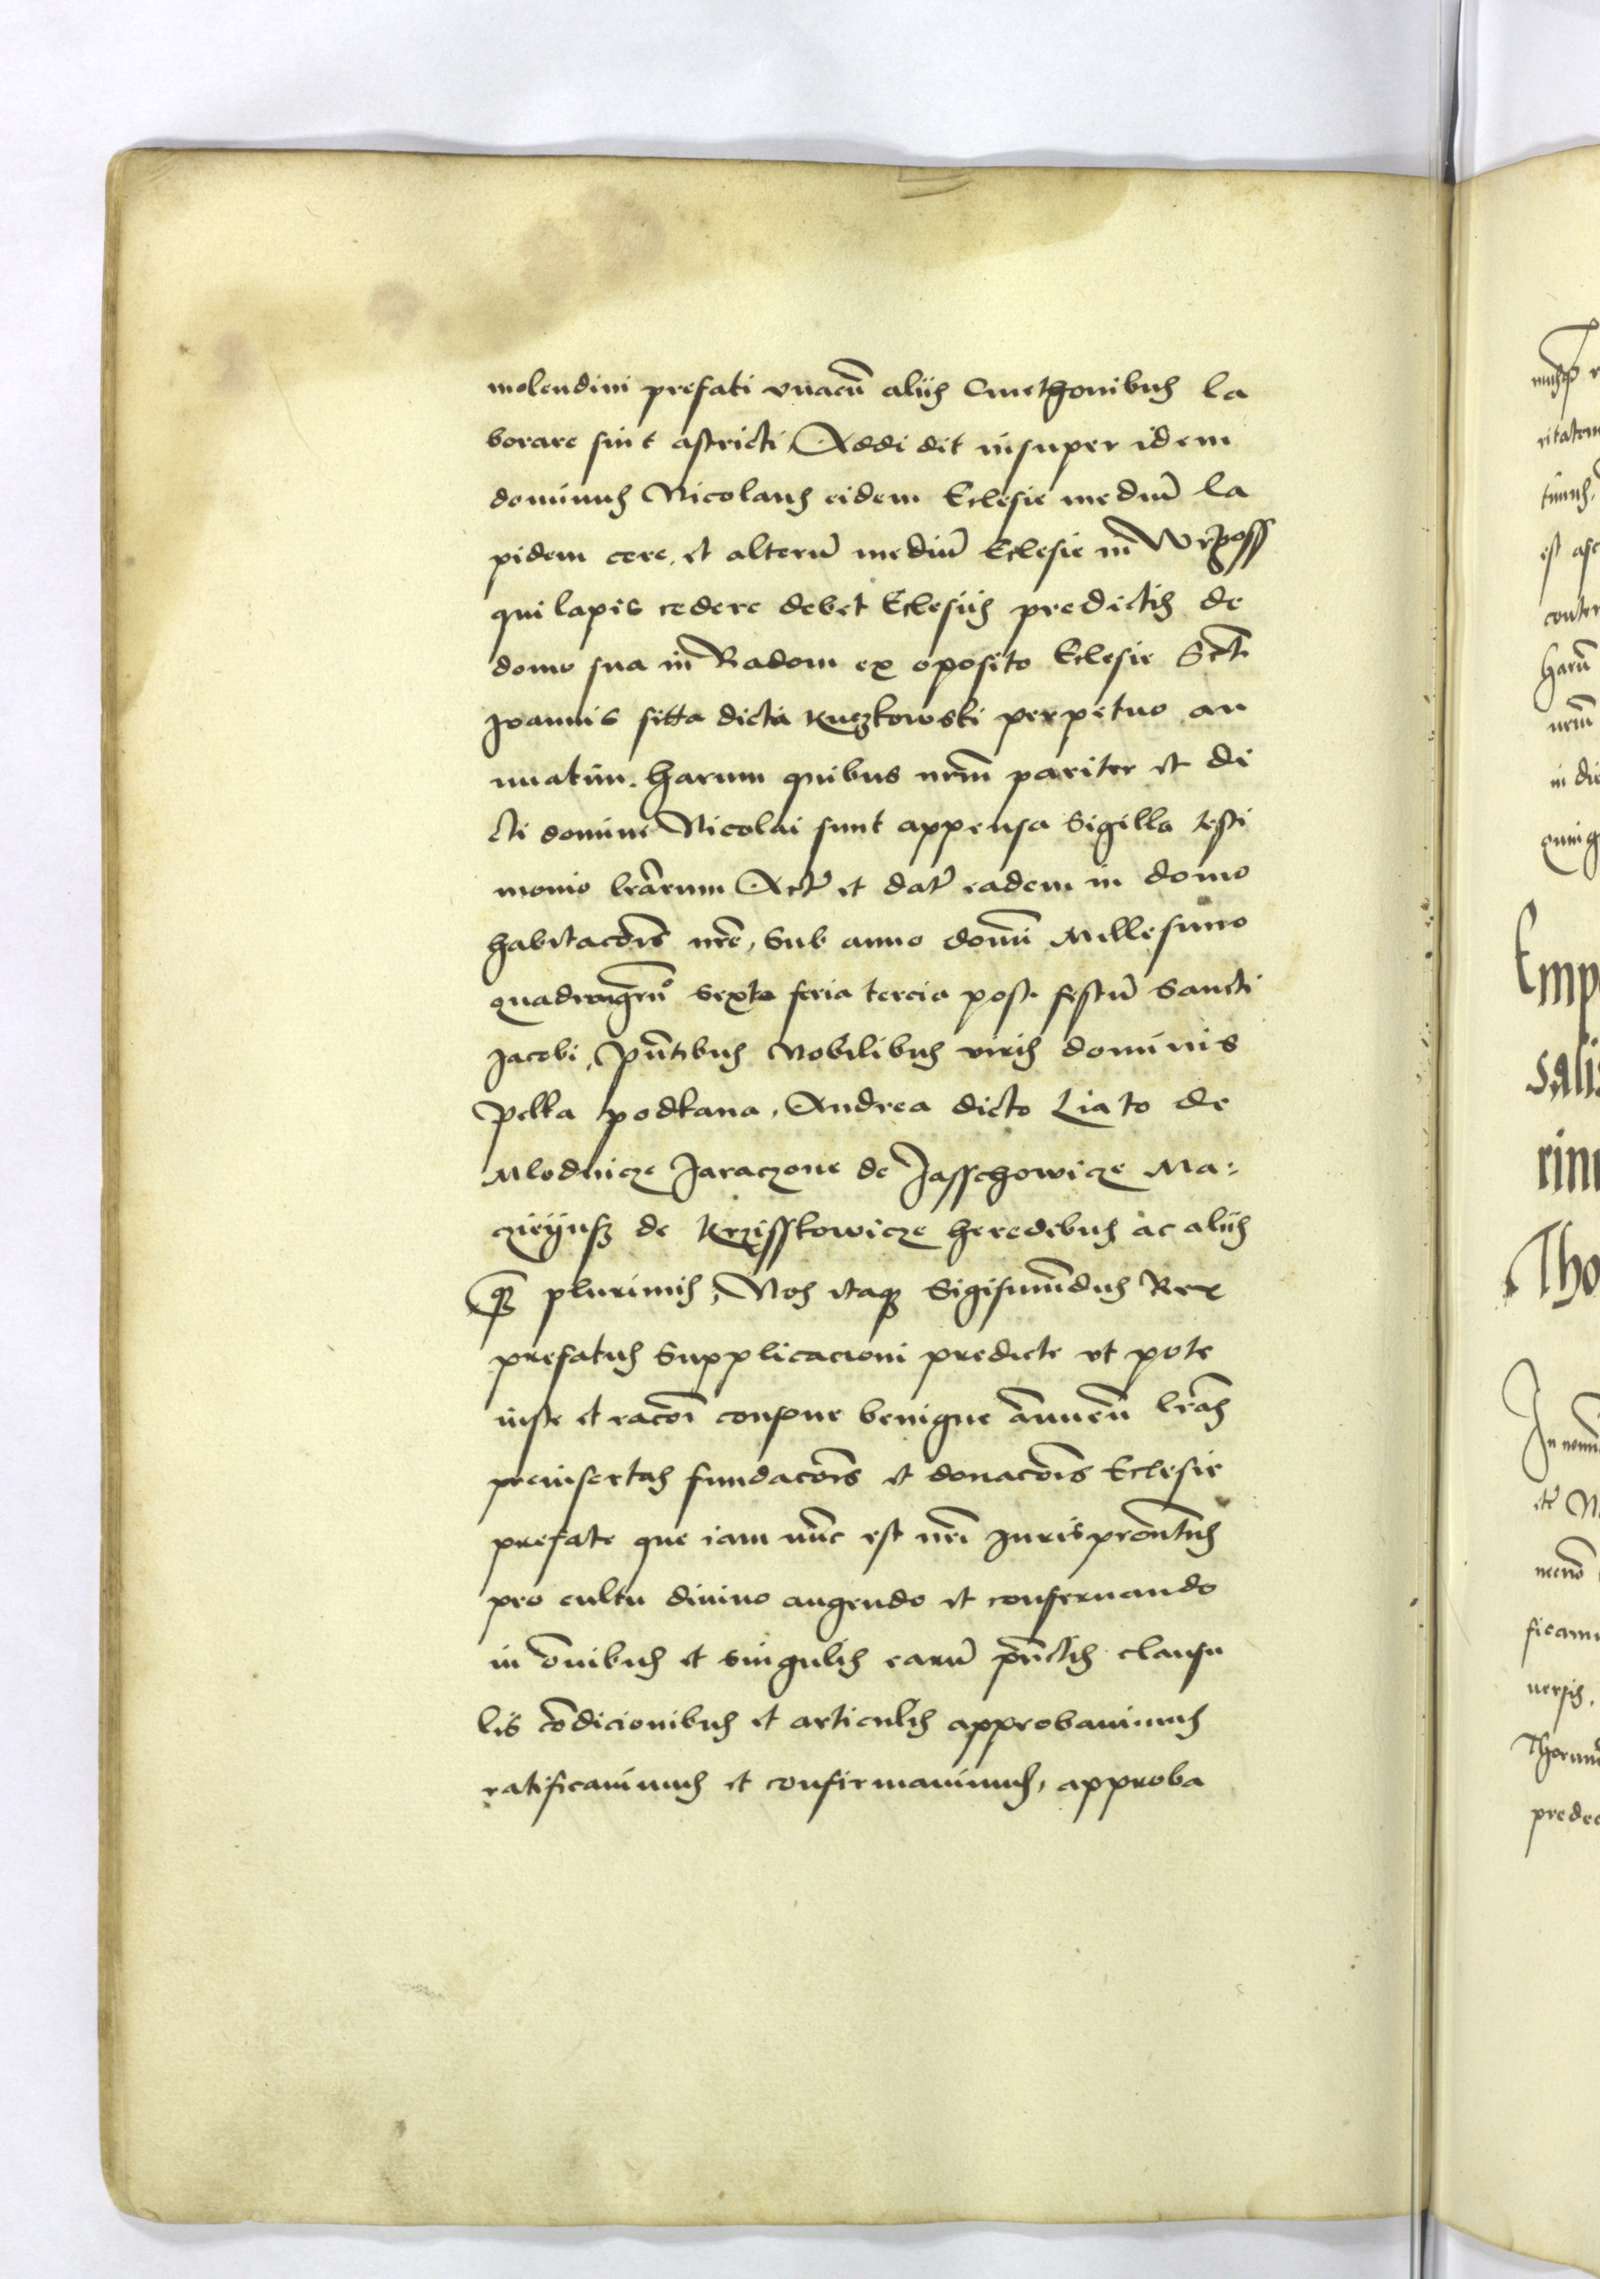 molendini prefati vnacū alijs Cmethonibus la
borare sint astricti Addi dit insuper idem
dominus Nicolaus eidem Eclesie mediū la
pidem cere, et alterū mediū Eclesie in
qui lapis cedere debet Eclesijs predictis de
domo sua in Radom ex oposito Eclesie Scti
Joannis sitta dicta Kuczkowski perpetuo an
nuatim. harum quibus nrm̄ pariter et di
cti domini Nicolai sunt appensa Sigilla testi
monio lrārum Act̄ et dat̄ eadem in domo
habitacōis nrē, Sub anno domī Millesimo
quadringēnº Sexto feria tercia post festū Sancti
Jacobi, pn̄tibus Nobilibus viris dominis
Pelka podkana, Andrea dicto Liato de
Mlodnicze Jaraczone de Jasschowicze Ma-
de Krzisskowicze heredibus ac alijs
q̄ plurimis, Nos itaq Sigismūdus Rex
prefatus Supplicacioni predicte vt pote
iuste et racōi consone benigne ānuen̄ lrās
preinsertas fundacōis et donacōis Eclesie
prefate que iam nūc est nrī Jurispatronatus
pro cultu diuino augendo et conseruando
in ōnibus et singulis earū pūctis clausu
lis cōdicionibus et articulis approbauimus
ratificauimus et confirmauimus, approba
Emp
salis
rin
Tho